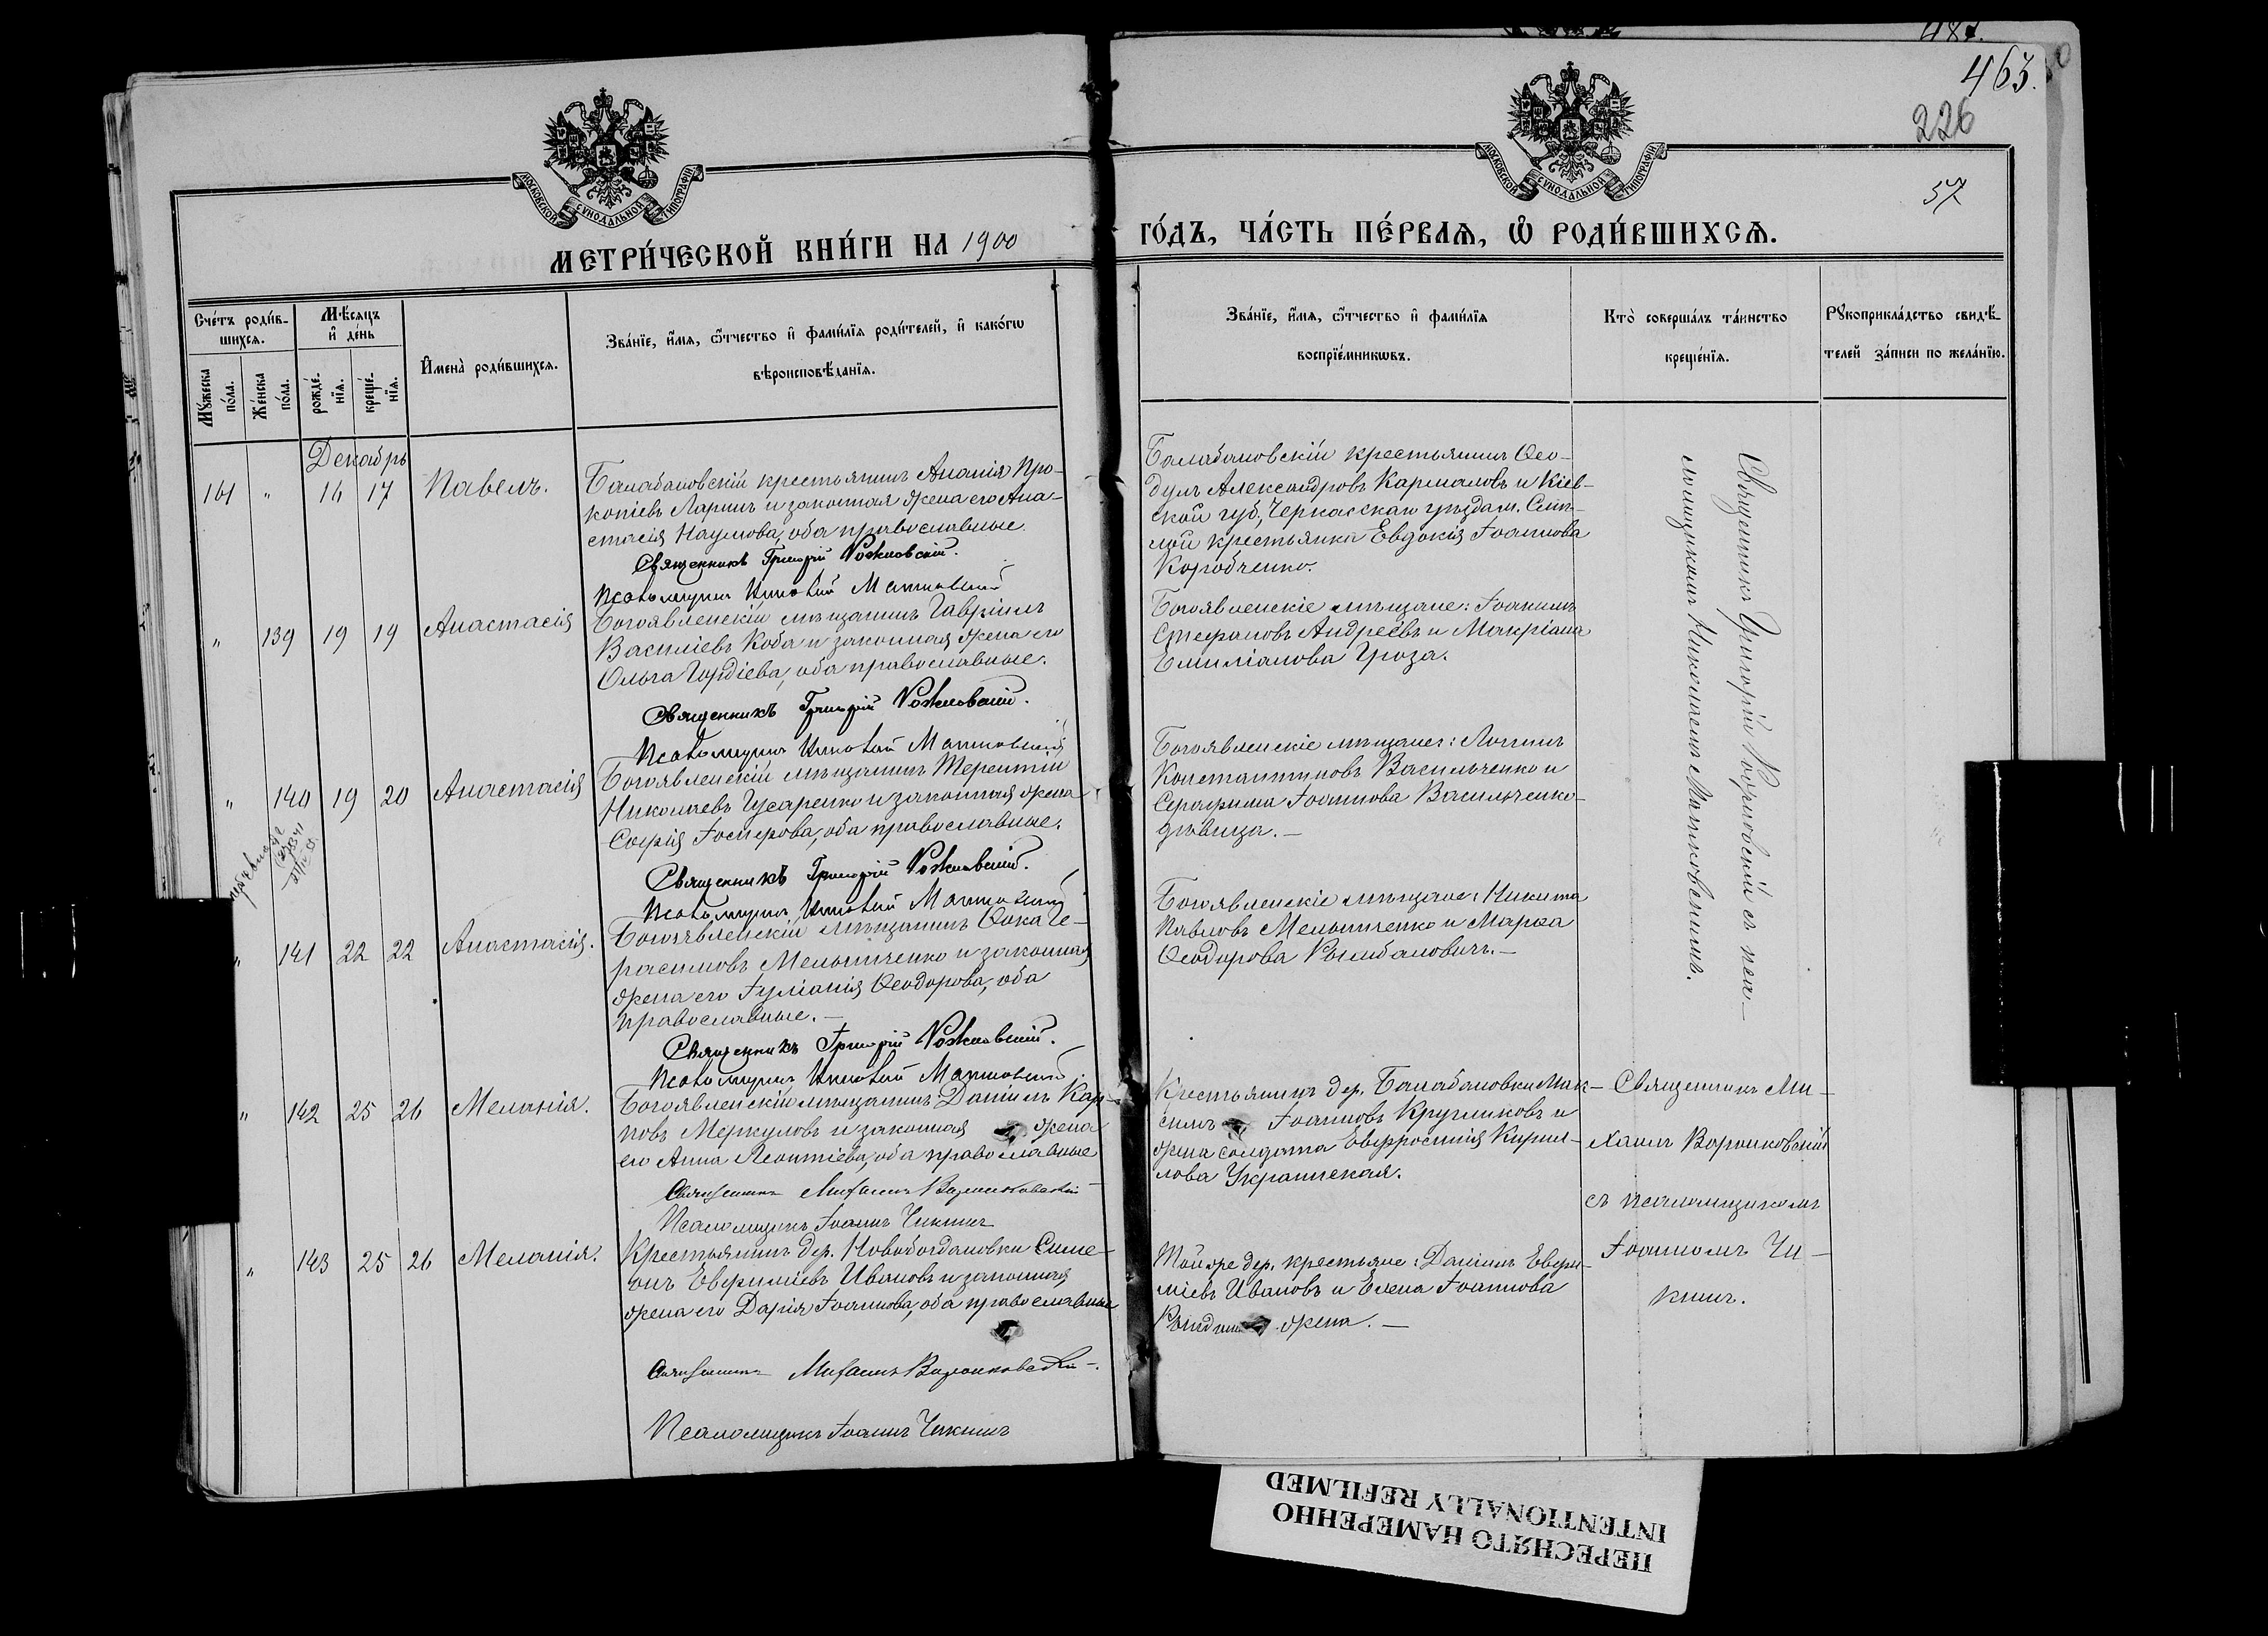 487.
463.
226
57
МОСКОВСКОЙ СѴНОДАЛЬНОЙ ТИПОГРАФІИ
МОСКОВСКОЙ СѴНОДАЛЬНОЙ ТИПОГРАФІИ
МЕТРИ́ЧЕСКОЙ КНИ́ГИ НА 1900
ГО́ДЪ, ЧА́СТЬ ПЕ́РВАѦ, Ѡ҆ РОДИ́ВШИХСѦ.
Сче́тъ роди́в-
шихся.
Мѣ́сяцъ
и҆ де́нь
Мꙋ́жеска
по́ла.
Же́нска
по́ла.
рожде́-
нїя.
креще́-
нїя.
И҆мена̀ роди́вшихся.
Зва́нїе, и҆́мя, ѻ҆́тчество и҆ фами́лїя роди́телей, и҆ како́гѡ
вѣроисповѣ́данїя.
Зва́нїе, и҆́мя, ѻ҆́тчество и҆ фами́лїя
воспрїе́мникѡвъ.
Кто̀ соверша́лъ та́инство
креще́нїя.
Рꙋкоприкла́дство свидѣ́-
телей за́писи по жела́нїю.
Декабрь
161 " 16 17 Павелъ.
Балабановскій крестьянинъ Ананія Про-
копіевъ Ларинъ и законная жена его Ана-
стасія Наумова, оба православные
Священникъ Григорій
Балабановскій крестьянинъ Ѳео-
дулъ Александровъ Кармаловъ и Кіев-
ской губ., Черкасскаго уѣзда м.
крестьянка Евдокія Іоаннова
Коробченко.
" 139 19 19 Анастасія
Богоявленскій мѣщанинъ Гавріилъ
Василіевъ Коба и законная жена его
Ольга Гордіева, оба православные.
Священникъ Григорій
Богоявленскіе мѣщане: Іоакимъ
Стефановъ Андреевъ и Макріана
Емиліанова Гроза.
" 140 19 20 Анастасія
Богоявленскій мѣщанинъ Терентій
Николаевъ Гусаренко и законная жена
Софія Іосифова, оба православные.
Священникъ Григорій
Богоявленскіе мѣщане: Логгинъ
Константиновъ Васильченко и
Серафима Іоаннова Васильченко-
дѣвица.—
" 141 22 22 Анастасія.
Богоявленскій мѣщанинъ Ѳока Ге-
расимовъ Мельниченко и законная
жена его Іуліанія Ѳеодорова, оба
православные.—
Священникъ Григорій
Богоявленскіе мѣщане: Никита
Павловъ Мельниченко и Марѳа
Ѳеодорова
Священникъ Григорій съ пса-
ломщикомъ
" 142 25 26 Меланія.
Богоявленскій мѣщанинъ Даніилъ Кар-
повъ Меркуловъ и законная жена
его Анна Леонтіева, оба православные
Священникъ Михаилъ Воронковскій
Псаломщикъ Іоаннъ Чикинъ
Крестьянинъ дер. Балабановки Мак-
симъ Іоанновъ Кругликовъ и
жена солдата Евфросинія Кирил-
лова Украинская.
Священникъ Ми-
хаилъ Воронковскій
съ псаломщикомъ
Іоанномъ Чи-
кинъ.
" 143 25 26 Меланія.
Крестьянинъ дер. Новобогдановки Симе-
онъ Евфиміевъ Ивановъ и законная
жена его Дарія Іоаннова, оба православные
Священникъ Михаилъ Воронковскій
Псаломщикъ Іоаннъ Чикинъ
Той же дер. крестьяне: Даніилъ Евфи-
міевъ Ивановъ и Елена Іоаннова
жена.—
ПЕРЕСНЯТО НАМЕРЕННО
INTENTIONALLY REFILMED